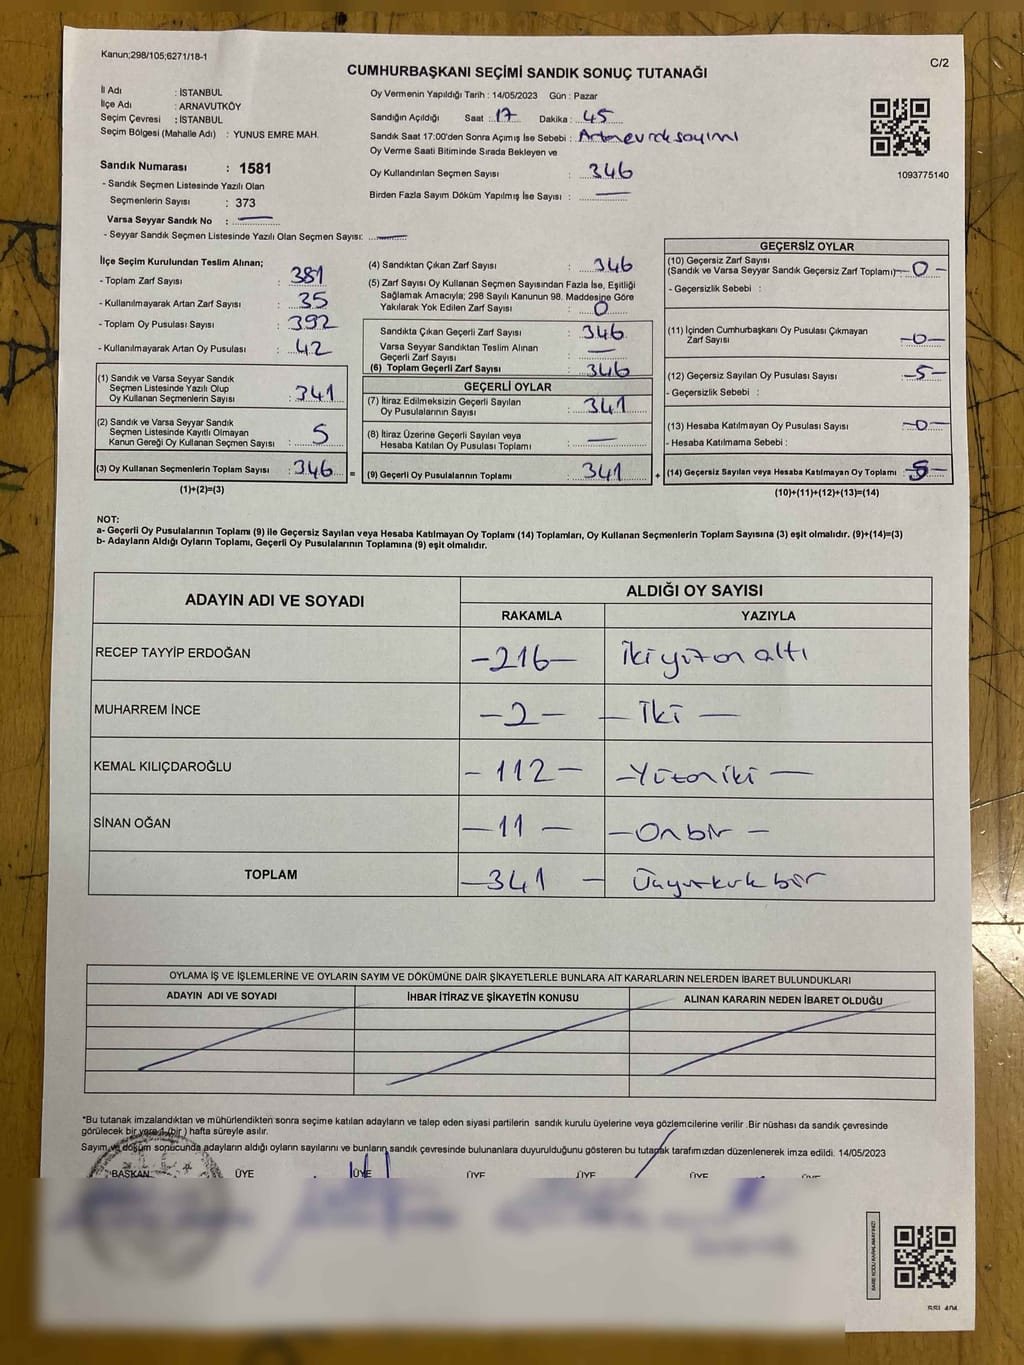 Kanun;298/105;6271/18-1
C/2
CUMHURBAŞKANI SEÇİMİ SANDIK SONUÇ TUTANAĞI
İl Adı : İSTANBUL
İlçe Adı : ARNAVUTKÖY
Seçim Çevresi : İSTANBUL
Seçim Bölgesi (Mahalle Adı) : YUNUS EMRE MAH.
Sandık Numarası : 1581
- Sandık Seçmen Listesinde Yazılı Olan
Seçmenlerin Sayısı : 373
Varsa Seyyar Sandık No :
- Seyyar Sandık Seçmen Listesinde Yazılı Olan Seçmen Sayısı:
Oy Vermenin Yapıldığı Tarih : 14/05/2023 Gün : Pazar
Sandığın Açıldığı Saat : 17 Dakika : 45
Sandık Saat 17:00'den Sonra Açımış İse Sebebi : Artanevraksayımı
Oy Verme Saati Bitiminde Sırada Bekleyen ve
Oy Kullandırılan Seçmen Sayısı : 346
Birden Fazla Sayım Döküm Yapılmış İse Sayısı : —
1093775140
İlçe Seçim Kurulundan Teslim Alınan;
- Toplam Zarf Sayısı : 381
- Kullanılmayarak Artan Zarf Sayısı : 35
- Toplam Oy Pusulası Sayısı : 392
- Kullanılmayarak Artan Oy Pusulası : 42
(1) Sandık ve Varsa Seyyar Sandık
Seçmen Listesinde Yazılı Olup
Oy Kullanan Seçmenlerin Sayısı : 341
(2) Sandık ve Varsa Seyyar Sandık
Seçmen Listesinde Kayıtlı Olmayan
Kanun Gereği Oy Kullanan Seçmen Sayısı : 5
(3) Oy Kullanan Seçmenlerin Toplam Sayısı : 346 =
(1)+(2)=(3)
(4) Sandıktan Çıkan Zarf Sayısı : 346
(5) Zarf Sayısı Oy Kullanan Seçmen Sayısından Fazla İse, Eşitliği
Sağlamak Amacıyla; 298 Sayılı Kanunun 98. Maddesine Göre
Yakılarak Yok Edilen Zarf Sayısı : 0
Sandıkta Çıkan Geçerli Zarf Sayısı : 346
Varsa Seyyar Sandıktan Teslim Alınan
Geçerli Zarf Sayısı : —
(6) Toplam Geçerli Zarf Sayısı : 346
GEÇERLİ OYLAR
(7) İtiraz Edilmeksizin Geçerli Sayılan
Oy Pusulalarının Sayısı : 341
(8) İtiraz Üzerine Geçerli Sayılan veya
Hesaba Katılan Oy Pusulası Toplamı : —
(9) Geçerli Oy Pusulalarının Toplamı : 341 +
GEÇERSİZ OYLAR
(10) Geçersiz Zarf Sayısı
(Sandık ve Varsa Seyyar Sandık Geçersiz Zarf Toplamı) -0-
- Geçersizlik Sebebi :
(11) İçinden Cumhurbaşkanı Oy Pusulası Çıkmayan
Zarf Sayısı -0-
(12) Geçersiz Sayılan Oy Pusulası Sayısı -5-
- Geçersizlik Sebebi :
(13) Hesaba Katılmayan Oy Pusulası Sayısı -0-
- Hesaba Katılmama Sebebi :
(14) Geçersiz Sayılan veya Hesaba Katılmayan Oy Toplamı : -5-
(10)+(11)+(12)+(13)=(14)
NOT:
a- Geçerli Oy Pusulalarının Toplamı (9) ile Geçersiz Sayılan veya Hesaba Katılmayan Oy Toplamı (14) Toplamları, Oy Kullanan Seçmenlerin Toplam Sayısına (3) eşit olmalıdır. (9)+(14)=(3)
b- Adayların Aldığı Oyların Toplamı, Geçerli Oy Pusulalarının Toplamına (9) eşit olmalıdır.
ADAYIN ADI VE SOYADI
ALDIĞI OY SAYISI
RAKAMLA YAZIYLA
RECEP TAYYİP ERDOĞAN -216- İkiyüzonaltı
MUHARREM İNCE -2- - İki -
KEMAL KILIÇDAROĞLU - 112 - - Yüzoniki -
SİNAN OĞAN - 11 - - Onbir -
TOPLAM -341 - Üçyüzkırkbir
OYLAMA İŞ VE İŞLEMLERİNE VE OYLARIN SAYIM VE DÖKÜMÜNE DAİR ŞİKAYETLERLE BUNLARA AİT KARARLARIN NELERDEN İBARET BULUNDUKLARI
ADAYIN ADI VE SOYADI İHBAR İTİRAZ VE ŞİKAYETİN KONUSU ALINAN KARARIN NEDEN İBARET OLDUĞU
*Bu tutanak imzalandıktan ve mühürlendikten sonra seçime katılan adayların ve talep eden siyasi partilerin sandık kurulu üyelerine veya gözlemcilerine verilir .Bir nüshası da sandık çevresinde
görülecek bir yere 1 (bir ) hafta süreyle asılır.
Sayım ve döküm sonucunda adayların aldığı oyların sayılarını ve bunların sandık çevresinde bulunanlara duyurulduğunu gösteren bu tutanak tarafımızdan düzenlenerek imza edildi. 14/05/2023
BAŞKAN ÜYE ÜYE ÜYE ÜYE ÜYE ÜYE